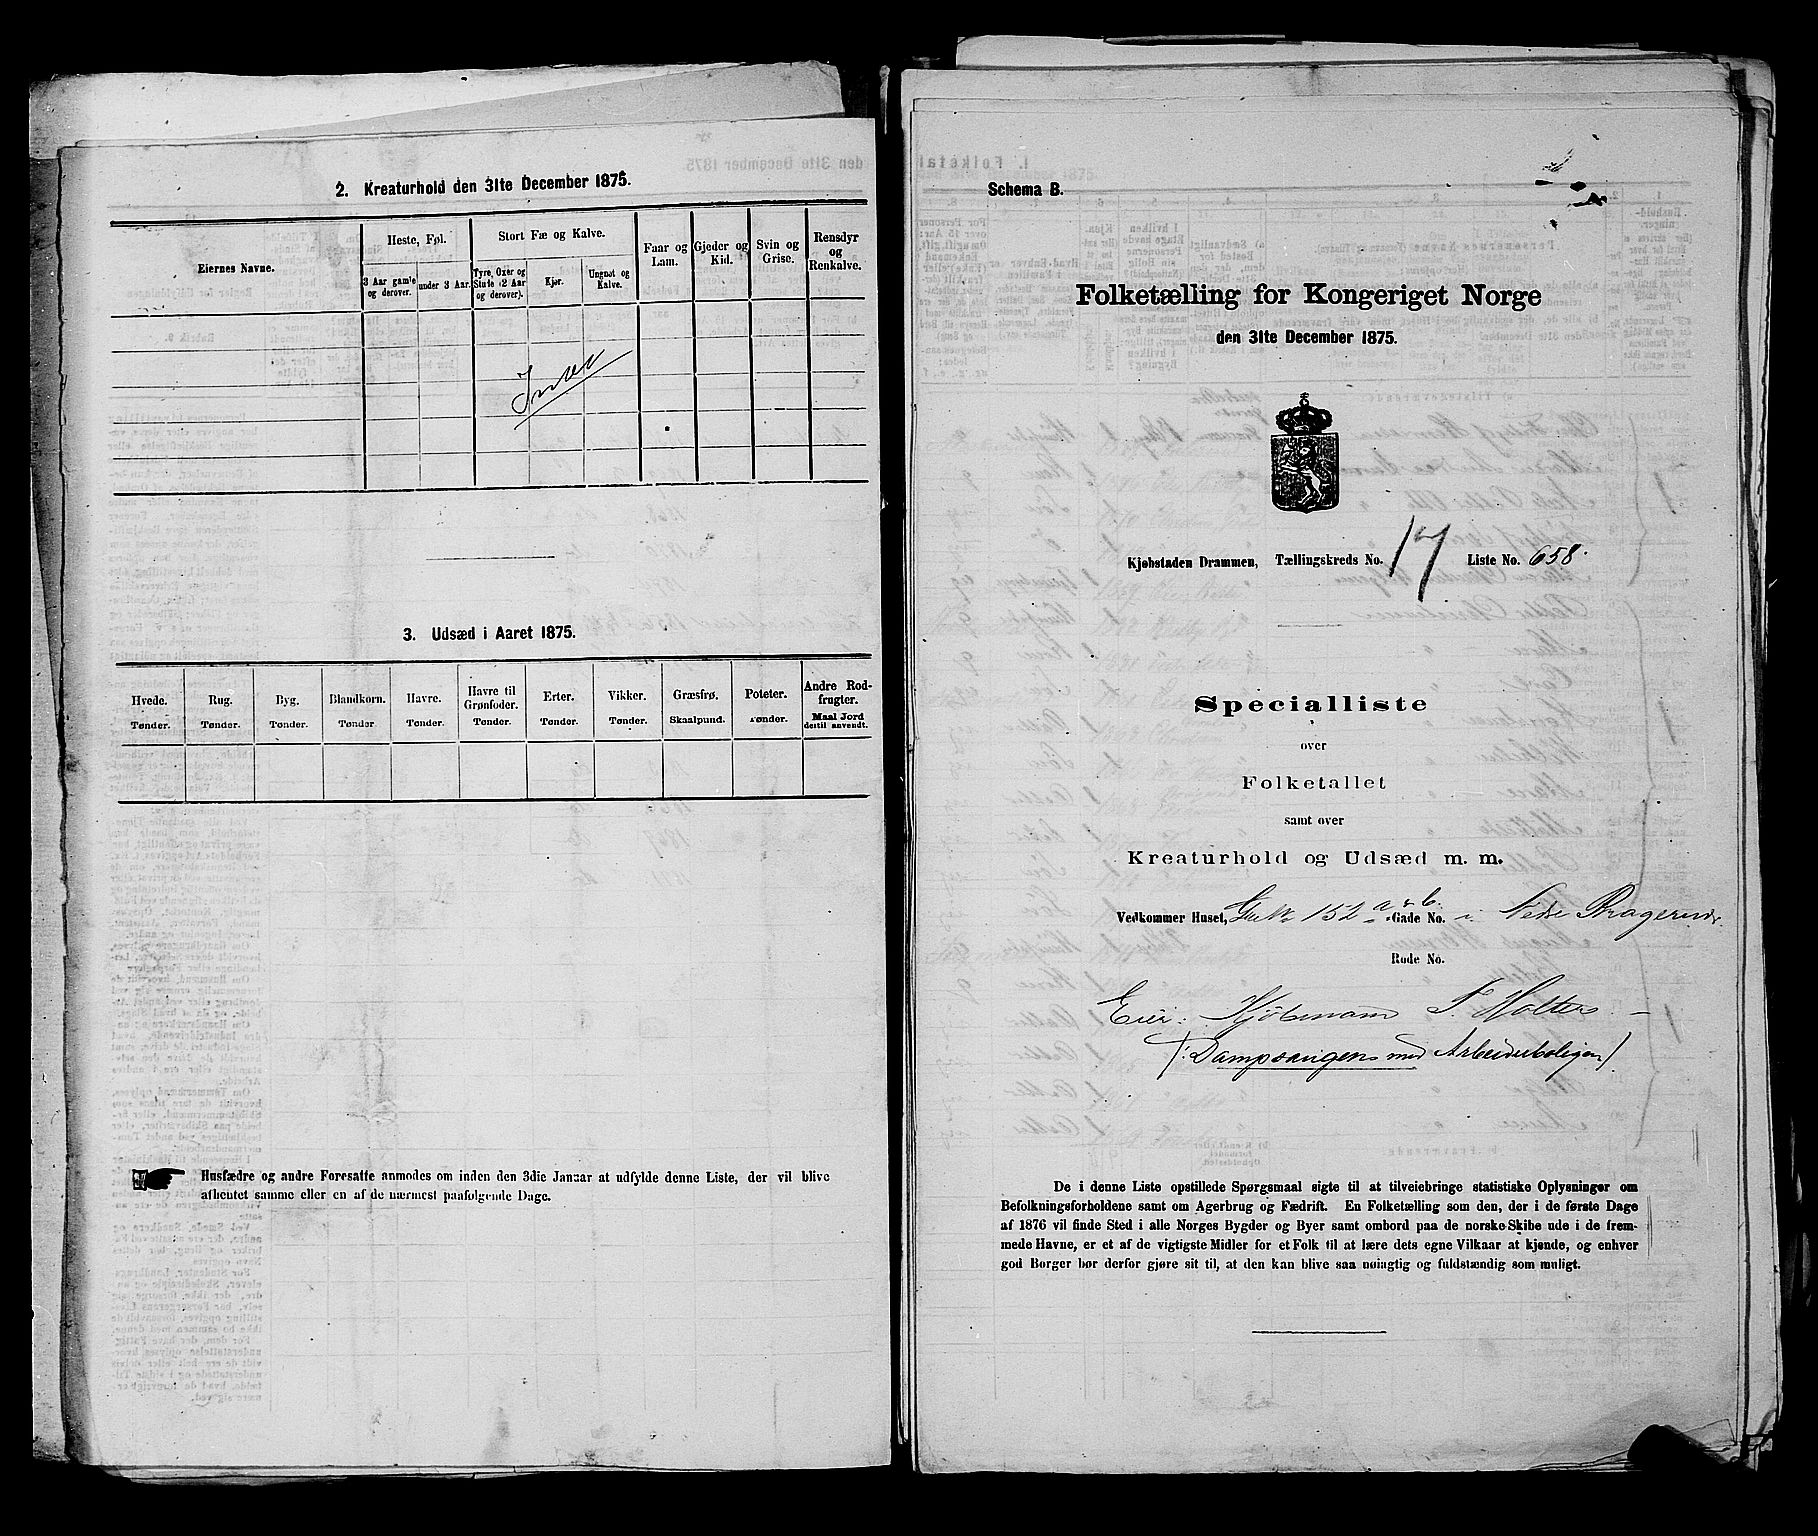 2. Kreaturhold den 31te December 1875.
Eiernes Navne.
Heste, Føl.
3 Aar gamle og derover.
under 3 Aar.
Stort Fæ og Kalve.
Tyre, Oxer og Stude (2 Aar og derover).
Kjør.
Ungnøt og Kalve.
Faar og Lam.
Gjeder og Kid.
Svin og Grise.
Rensdyr og Renkalve.
Intet
3. Udsæd i Aaret 1875.
Hvede. Tønder.
Rug. Tønder.
Byg. Tønder.
Blandkorn. Tønder.
Havre. Tønder.
Havre til Grønfoder. Tønder.
Erter. Tønder.
Vikker. Tønder.
Græsfrø. Skaalpund.
Poteter. Tønder.
Andre Rodfrugter. Maal Jord dertil anvendt.
Husfædre og andre Foresatte anmodes om inden den 3die Januar at udfylde denne Liste, der vil blive
afhentet samme eller en af de nærmest paafølgende Dage.
Schema B.
Folketælling for Kongeriget Norge
den 31te December 1875.
Kjøbstaden Drammen, Tællingskreds No. 17 Liste No. 658.
Specialliste
over
Folketallet
samt over
Kreaturhold og Udsæd m. m.
Vedkommer Huset, 152 a & b. Gade No. i Nedre Bragernes
Rode No.
Eier: Kjøbmand F. Holter
(: Dampsaugens med Arbeiderboligen)
De i denne Liste opstillede Spørgsmaal sigte til at tilveiebringe statistiske Oplysninger om
Befolkningsforholdene samt om Agerbrug og Fædrift. En Folketælling som den, der i de første Dage
af 1876 vil finde Sted i alle Norges Bygder og Byer samt ombord paa de norske Skibe ude i de frem-
mede Havne, er et af de vigtigste Midler for et Folk til at lære dets egne Vilkaar at kjende, og enhver
god Borger bør derfor gjøre sit til, at den kan blive saa nøiagtig og fuldstændig som muligt.